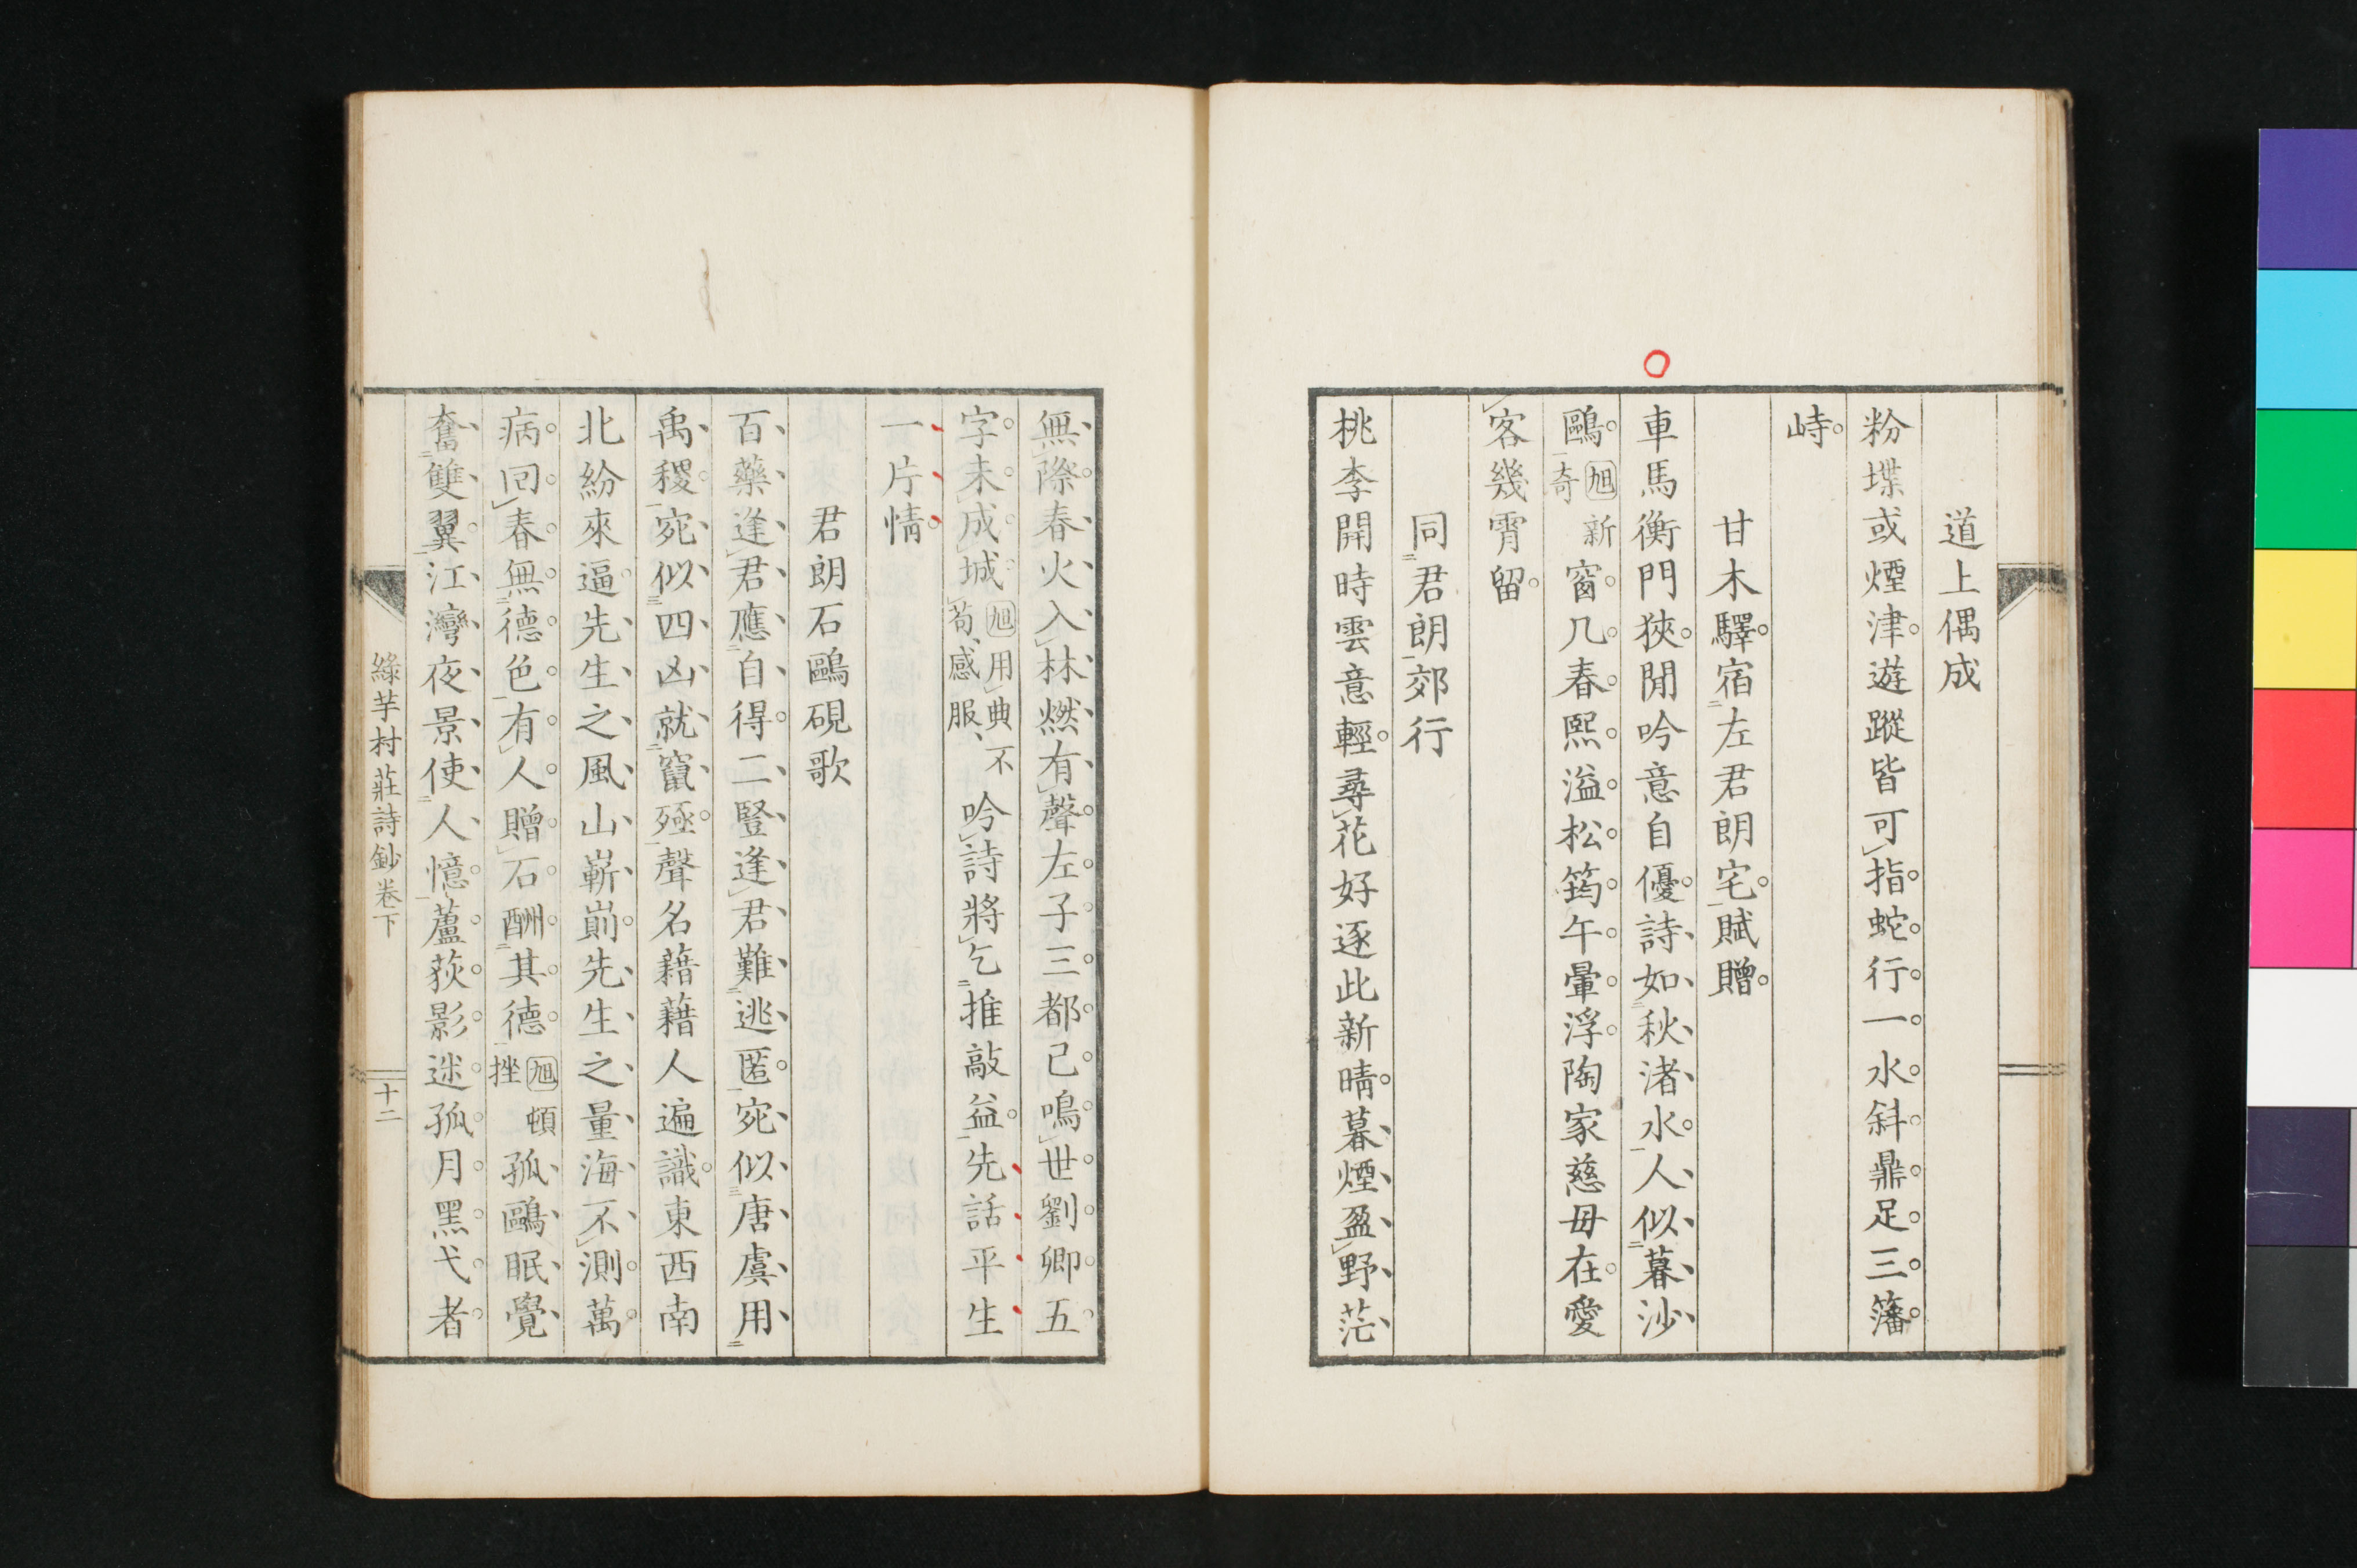 道上偶成
粉堞或煙津遊蹤皆可指蛇行一水斜鼎足三藩
峙
甘木驛宿左君朗宅賦贈
車馬衡門狹閒吟意自優詩如秋渚水人似暮沙
鷗旭新奇窗几春熙溢松筠午暈浮陶家慈母在愛
客幾宵留
同君朗郊行
桃李開時雲意輕尋花好逐此新晴暮煙盈野茫
無際春火入林燃有聲左子三都已鳴世劉卿五
字未成城旭用典不苟感服吟詩將乞推敲益先話平生
一片情
君朗石鷗硯歌
百藥逢君應自得二豎逢君難逃匿宛似唐虞用
禹稷宛似四凶就竄殛聲名藉藉人遍識東西南
北紛來逼先生之風山嶄崱先生之量海不測萬
病回春無德色有人贈石酬其德旭頓挫孤鷗眠覺
奮雙翼江灣夜景使人憶蘆荻影迷孤月黑弋者
綠芋村莊詩鈔卷下
十二